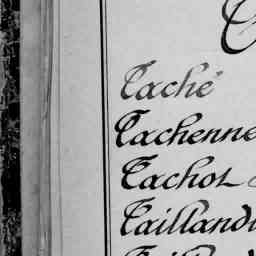 Taché
Tachenne
Tachot
Taillandi